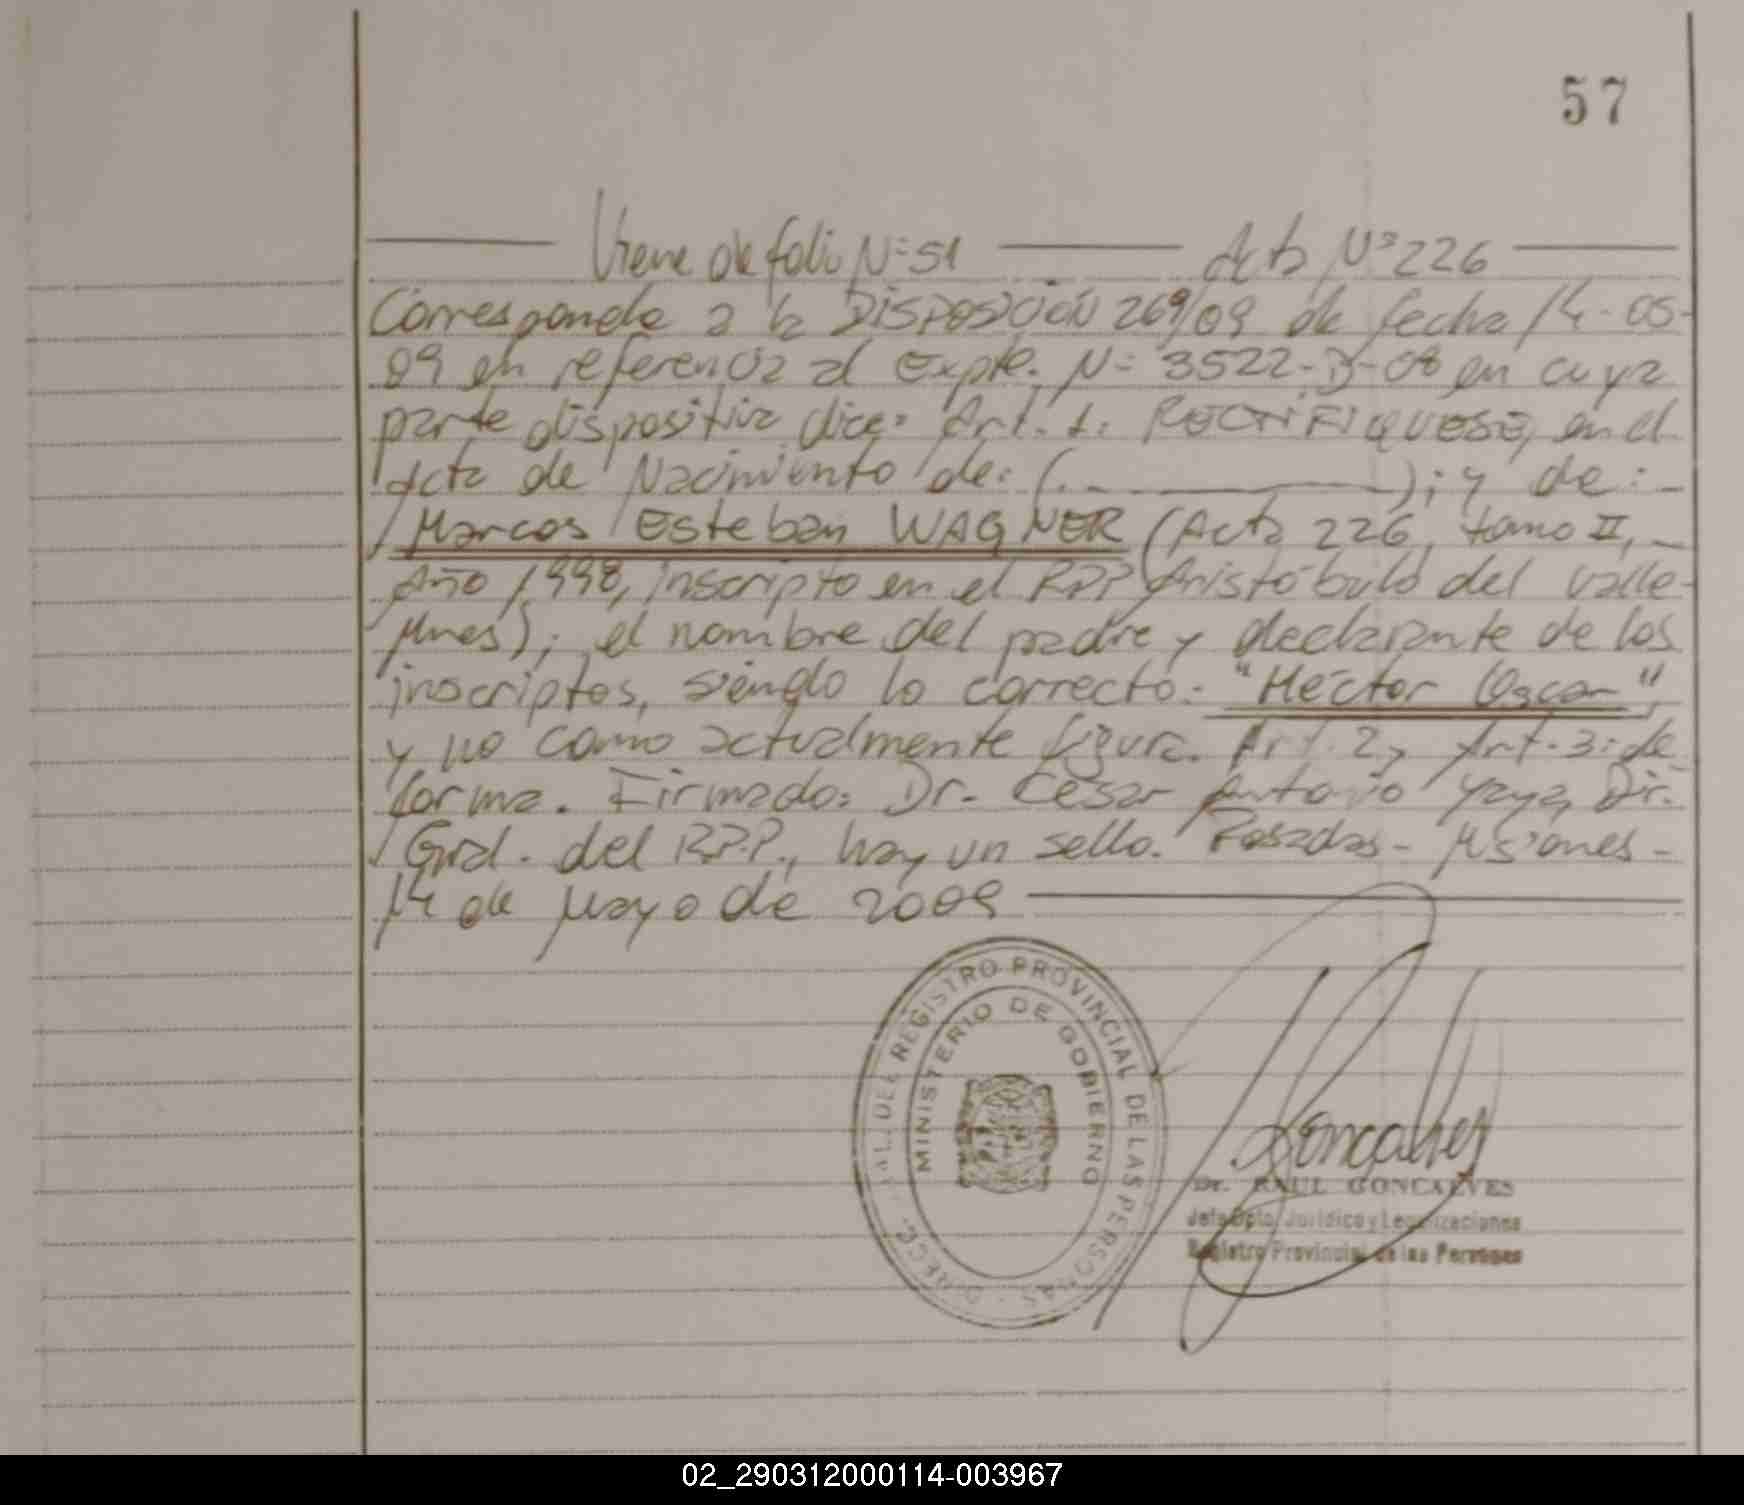 57
Viene de folio N=51 Acta Nº 226
Corresponde a la DISPOSICIÓN 269/09 de fecha 14-05-
09 en referencia al Expte. N= 3522-D-08 en cuya
parte dispositiva dice: Art. 1: RECTIFIQUESE, en el
Acta de Nacimiento de: (. ); y de:
Marcos Esteban WAGNER (Acta 226, tomo II,
Año 1998, inscripto en el RPP Aristóbulo del Valle-
Mnes); el nombre del padre y declarante de los
inscriptos, siendo lo correcto: "Héctor Oscar",
y no como actualmente figura. Art. 2, Art. 3: de
forma. Firmado: Dr. César Antonio Yaya, Dir.
Gral. del R.P.P., hay un sello. Posadas - Misiones -
14 de Mayo de 2009
DEL REGISTRO PROVINCIAL DE LAS PERSONAS
MINISTERIO DE GOBIERNO
Goncalves
Dr. RAUL GONCALVES
Jefe Dpto. Jurídico y Legalizaciones
Registro Provincial de las Personas
02_290312000114-003967